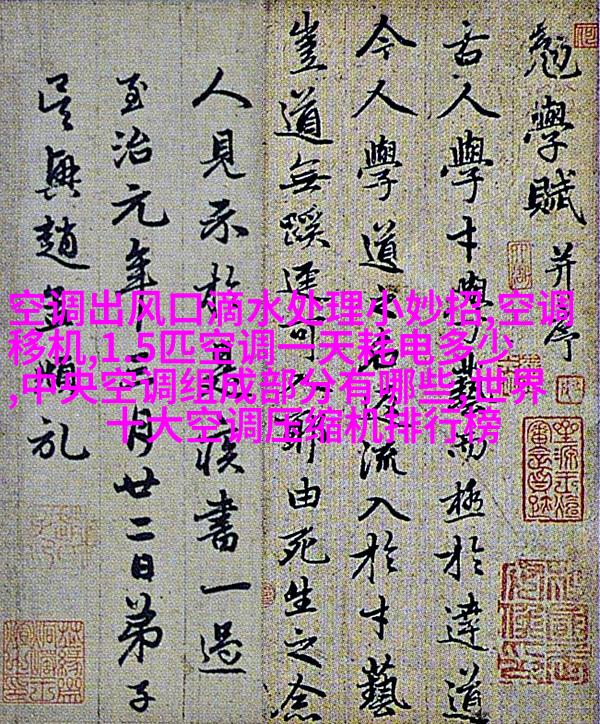 勉學賦并序
古人學才與學藝而極於達道
今人學道流入於才藝
豈道無蹊逕可由死生之念
人見示於是書一過
至治元年十二月廿二日弟子
吳興趙孟頫
空调出风口滴水处理小妙招,空调
移机,1.5匹空调一天耗电多少
,中央空调组成部分有哪些,世界
十大空调压缩机排行榜